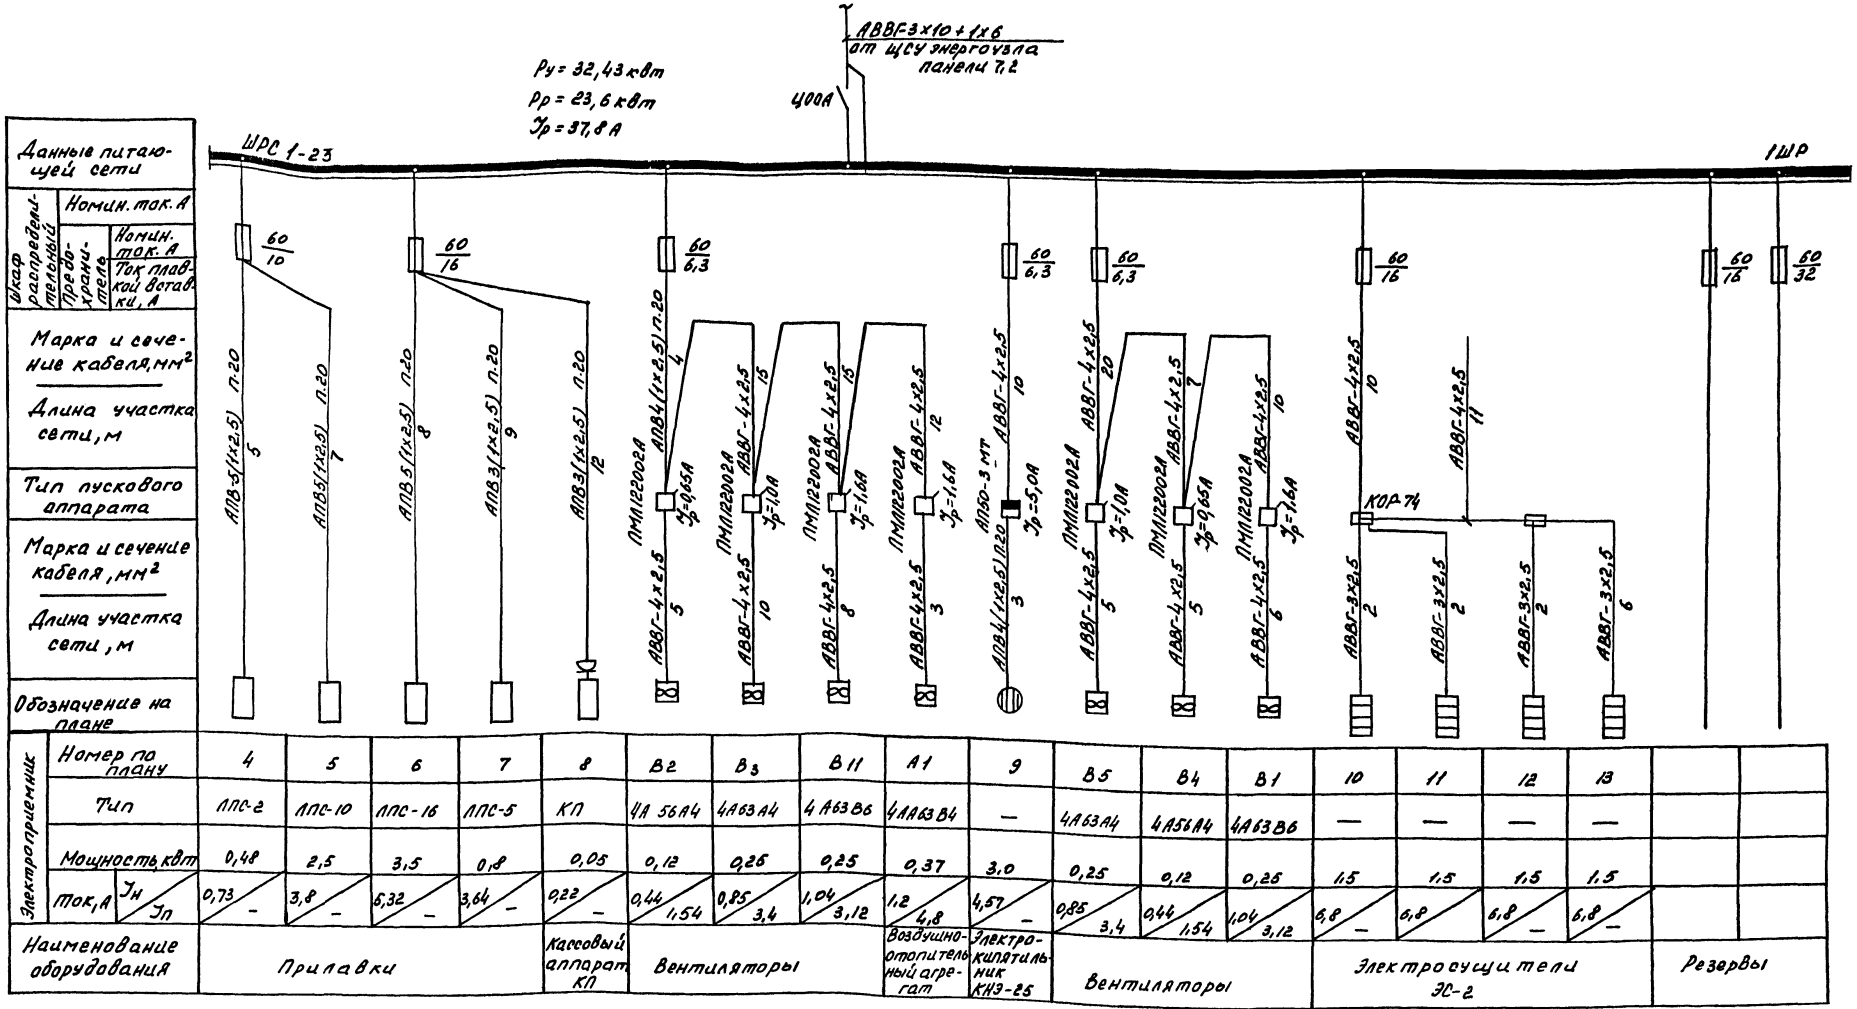 АВВГ-3х10+1х6
от ЩСУ энергоузла
панели 7,2
Ру= 32,43 квт
Рр= 23,6 квт
Jр= 37,8 А
ШРС 1-23
1ШР
Данные питаю-
щей сети
Шкаф
распредели-
тельный
Номин. ток. А
Предо-
храни-
тель
Номин.
ток. А
Ток плав-
кой встав-
ки, А
60
10
60
16
60
6,3
60
6,3
60
6,3
60
16
60
16
60
32
Марка и сече-
ние кабеля, мм²
Длина участка
сети, м
АПВ-5(1х2,5) п.20
5
АПВ5(1х2,5) п.20
7
АПВ5(1х2,5) п.20
8
АПВ3(1х2,5) п.20
9
АПВ3(1х2,5) п.20
12
АПВ4(1х2,5) п.20
4
АВВГ-4х2,5
15
АВВГ-4х2,5
15
АВВГ-4х2,5
12
АВВГ-4х2,5
10
АВВГ-4х2,5
20
АВВГ-4х2,5
7
АВВГ-4х2,5
10
АВВГ-4х2,5
10
АВВГ-4х2,5
11
Тип пускового
аппарата
ПМЛ122002А
Jр=0,65А
ПМЛ122002А
Jр=1,0А
ПМЛ122002А
Jр=1,6А
ПМЛ122002А
Jр=1,6А
АП50-3 МТ
Jр=5,0А
ПМЛ122002А
Jр=1,0А
ПМЛ122002А
Jр=0,65А
ПМЛ122002А
Jр=1,6А
КОР-74
Марка и сечение
кабеля, мм²
Длина участка
сети, м
АВВГ-4х2,5
5
АВВГ-4х2,5
10
АВВГ-4х2,5
8
АВВГ-4х2,5
3
АПВ4(1х2,5) п.20
3
АВВГ-4х2,5
5
АВВГ-4х2,5
5
АВВГ-4х2,5
6
АВВГ-3х2,5
2
АВВГ-3х2,5
2
АВВГ-3х2,5
2
АВВГ-3х2,5
6
Обозначение на
плане
Электроприемник
Номер по
плану
4 5 6 7 8 В2 В3 В11 А1 9 В5 В4 В1 10 11 12 13
Тип
ЛПС-2 ЛПС-10 ЛПС-16 ЛПС-5 КП 4А 56А4 4А63А4 4А63В6 4АА63В4 — 4А63А4 4А56А4 4А63В6 — — — —
Мощность, квт
0,48 2,5 3,5 0,8 0,05 0,12 0,25 0,25 0,37 3,0 0,25 0,12 0,25 1,5 1,5 1,5 1,5
Ток, А Jн Jп
0,73 — 3,8 — 5,32 — 3,64 — 0,22 — 0,44 1,54 0,85 3,4 1,04 3,12 1,2 4,8 4,57 — 0,85 3,4 0,44 1,54 1,04 3,12 6,8 — 6,8 — 6,8 — 6,8 —
Наименование
оборудования
Прилавки
Кассовый
аппарат
КП
Вентиляторы
Воздушно-
отопитель-
ный агре-
гат
Электро-
кипятиль-
ник
КНЭ-25
Вентиляторы
Электросушители
ЭС-2
Резервы